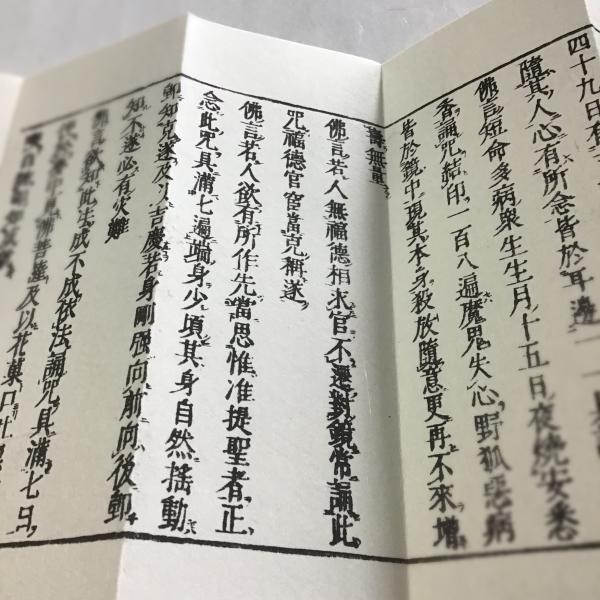 四十九日有
隨其人心有所念皆於耳邊一一
佛言短命多病衆生生月十五日夜燒安悉
香誦咒結印一百八遍魔鬼失心野狐惡病
皆於鏡中現其本身殺放隨意更再不來增
壽無量
佛言若人無福德相求官不遷對鏡常誦此
咒福德官窟當克稱遂
佛言若人欲有所作先當思惟准提聖者正
念此咒具滿七遍端身少頃其身自然搖動
卽知克遂及以吉慶若身剛强向前向後卽
知不遂必有灾難
欲知此生成不成依法誦咒具滿七日
見佛菩薩及以花菓口